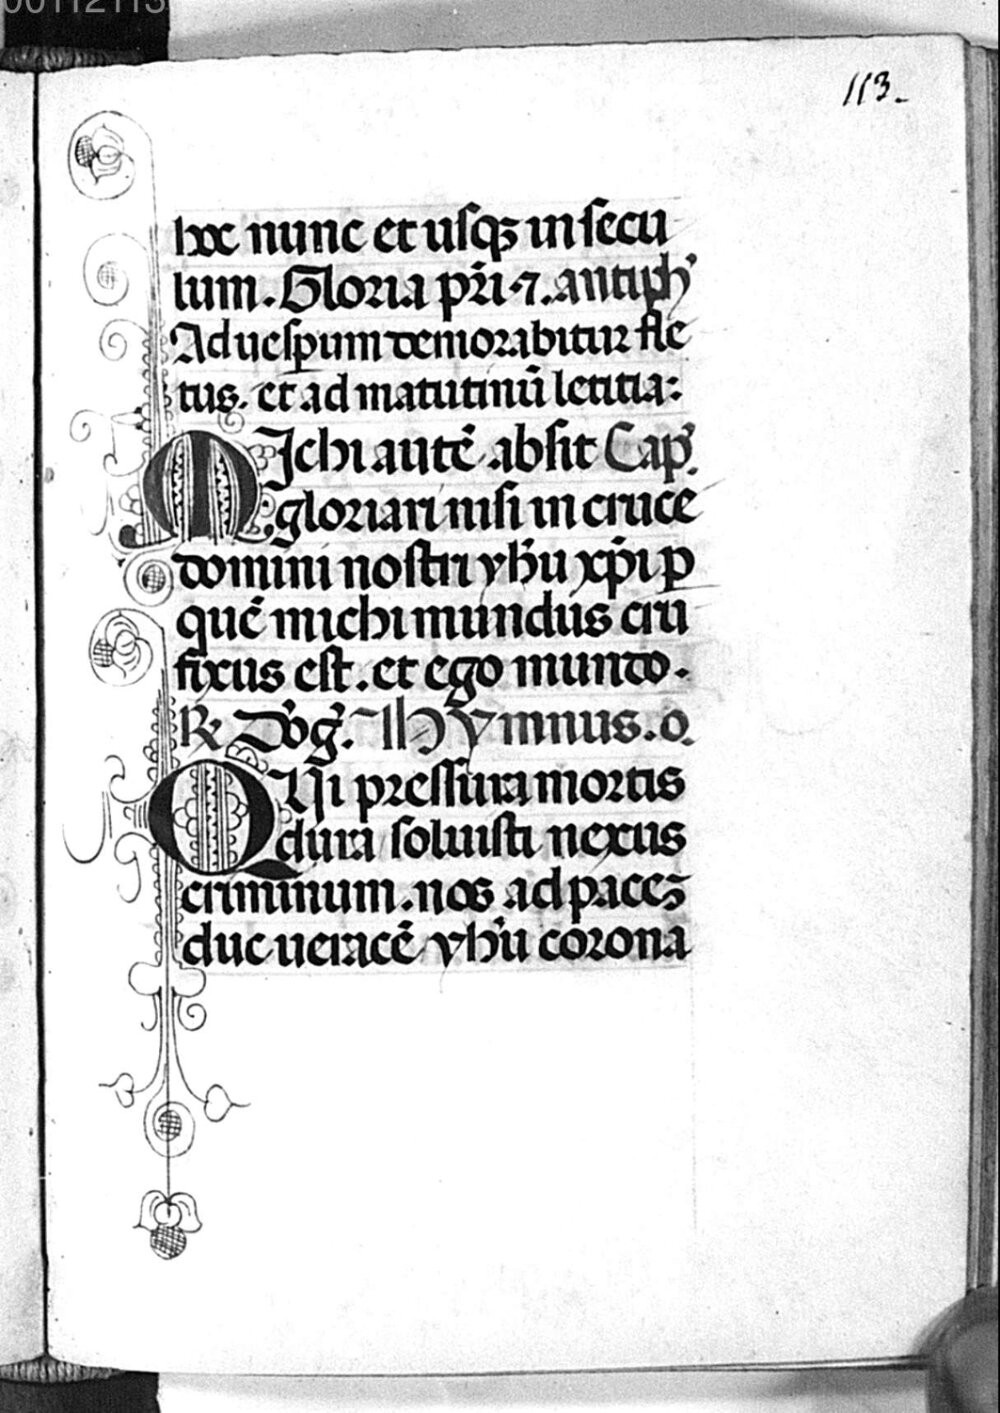 00112113
113.
hoc nunc et usqꝫ in secu
lum. Gloria pr̄i ⁊. antiph'
Ad uesꝑum demorabitur fle
tus. et ad matutinū letitia:
MIchi autē absit Cap̄.
gloriari nisi in cruce
domini nostri yhū xp̄i ꝑ
quē michi mundus cru
fixus est. et ego mundo.
℟ Ymnus.
QUi pressura mortis
dura soluisti nexus
criminum. nos ad paceꝫ
duc ueracē yhū corona